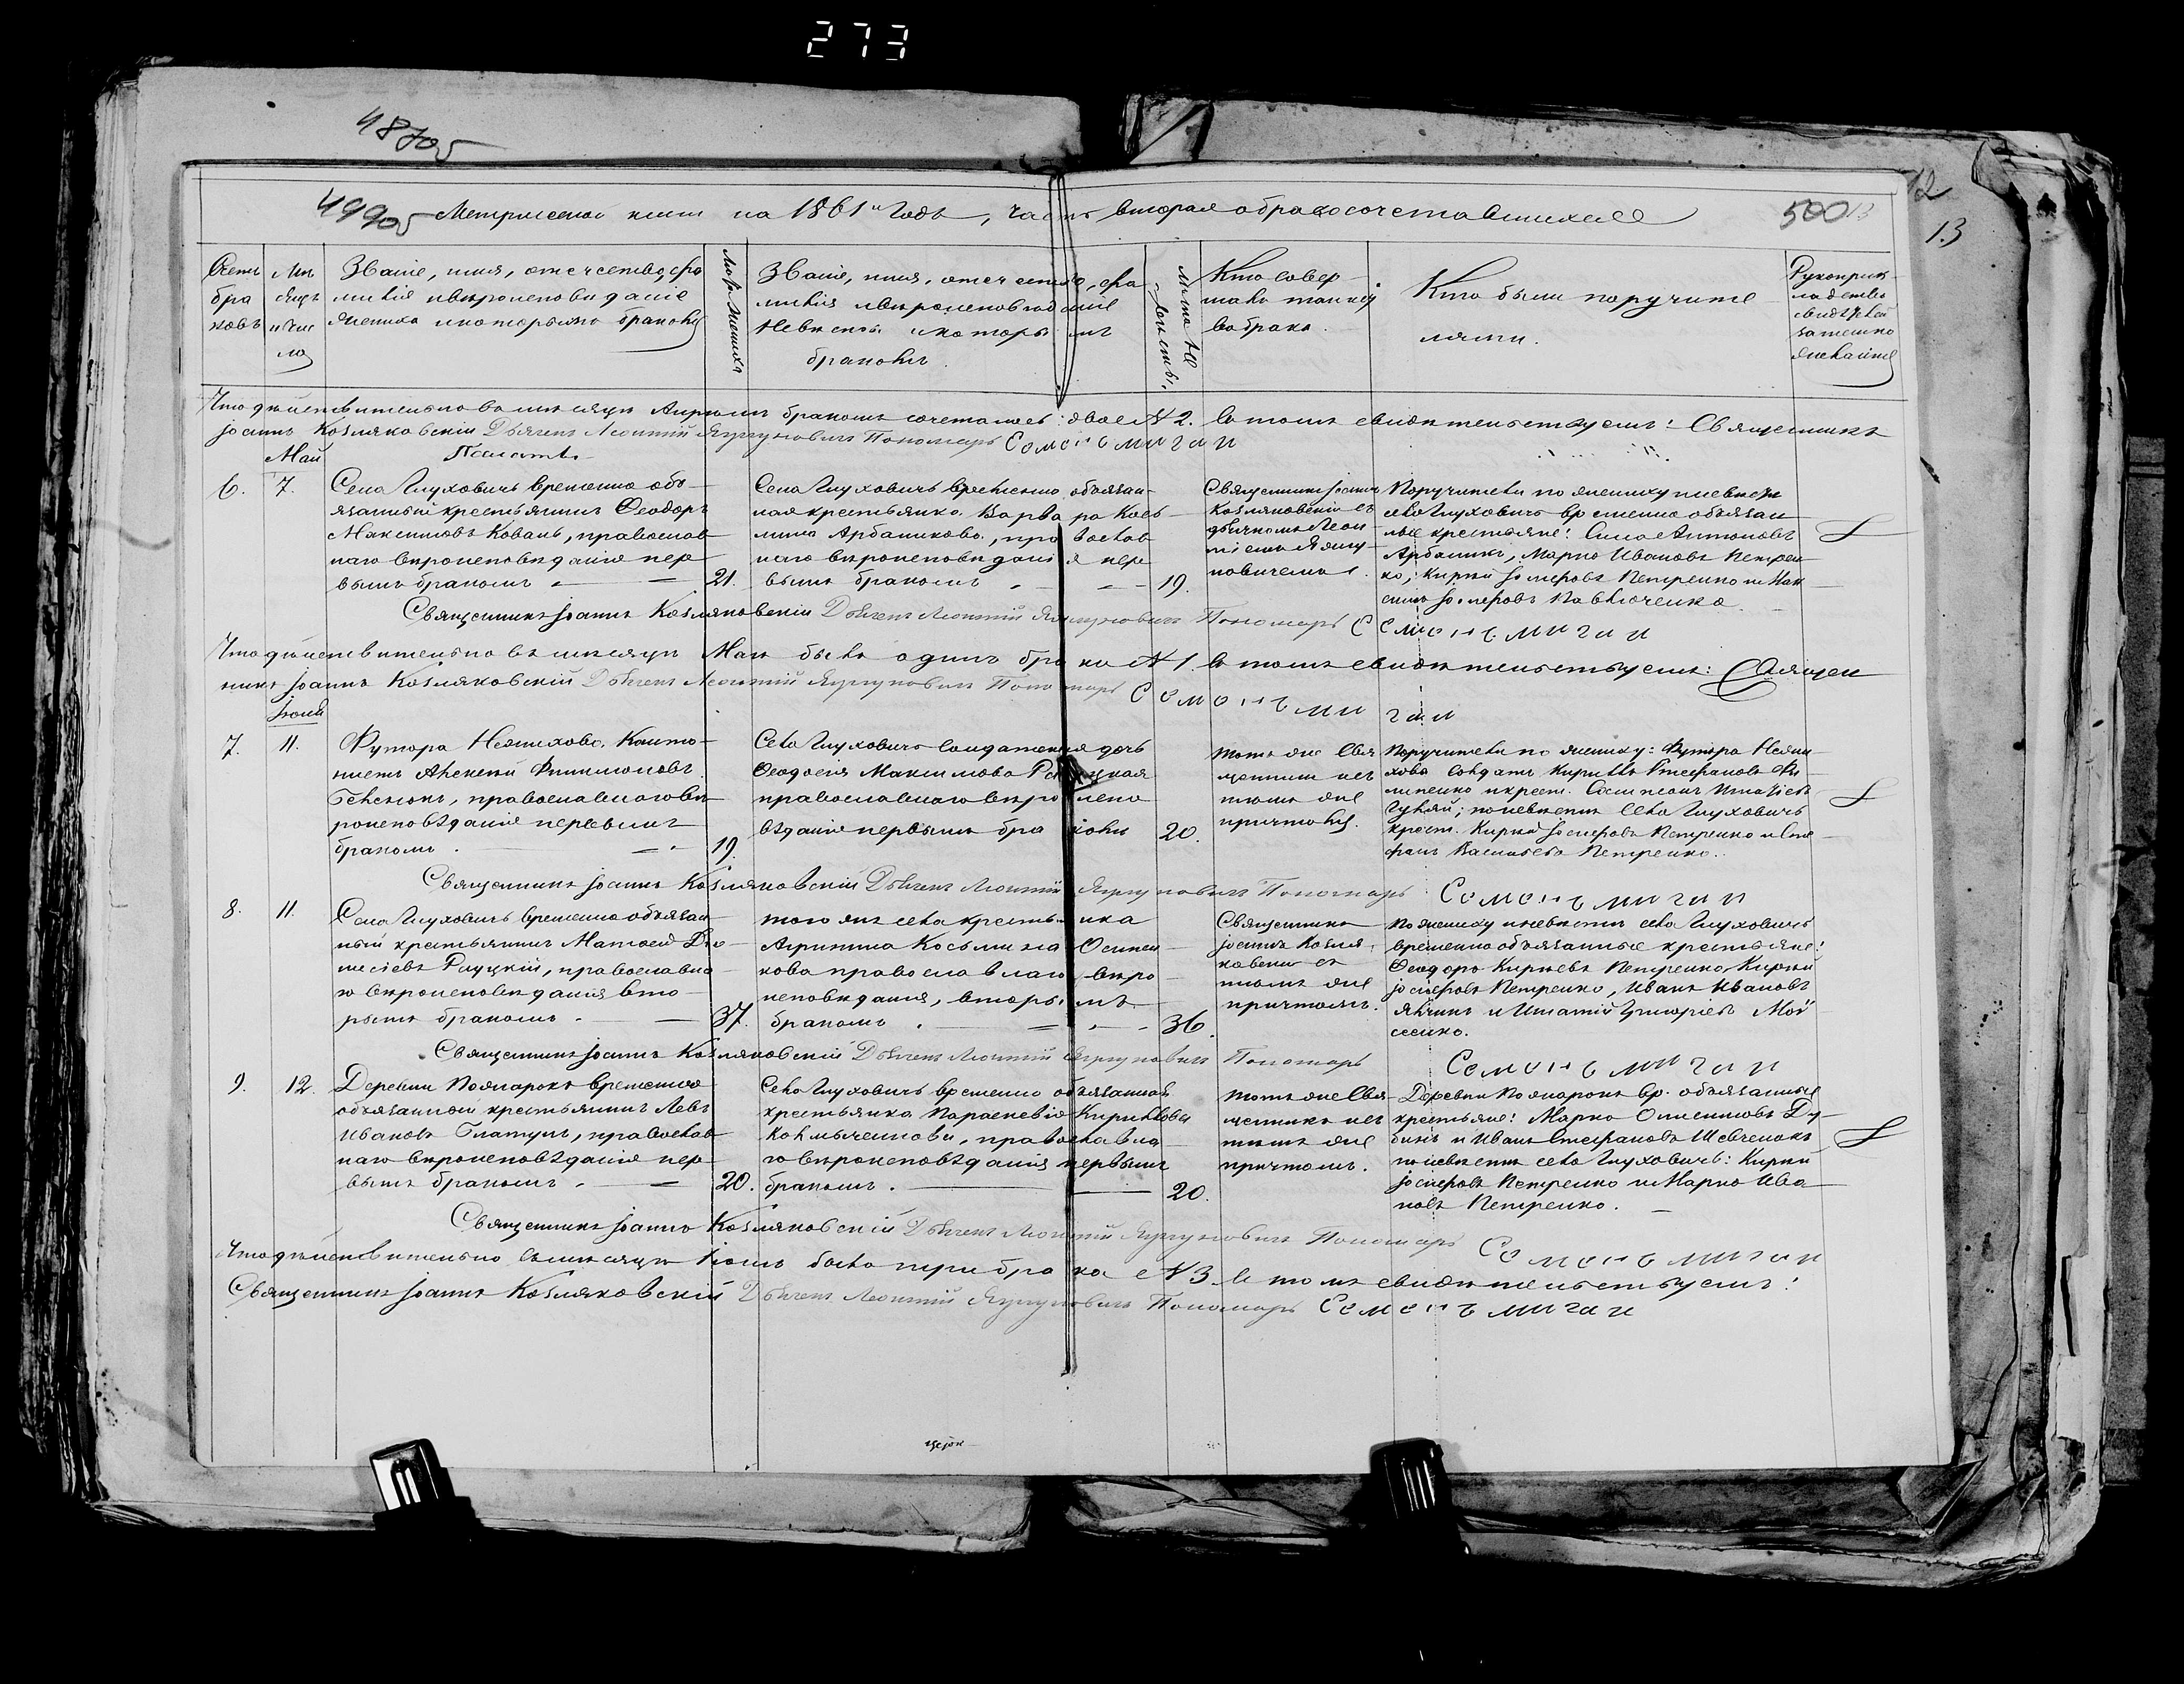 273
48705
49905
Метрической книги на 1861й Годъ, часть вторая о бракосочетавшихся
500
12
13
Счетъ браковъ
Мѣсяцъ и число
Званіе, имя, отечество, фамилія и вѣроисповѣданіе жениха и которымъ бракомъ
Лѣта жениха
Званіе, имя, отечество, фамилія и вѣроисповѣданіе невѣсты и которымъ бракомъ.
Лѣта невѣсты.
Кто совершалъ таинство брака.
Кто были поручителями.
Рукоприкладство свидѣтелей записи по желанію
Что дѣйствительно въ мѣсяцѣ Апрѣлѣ бракомъ сочеталось: двое № 2. въ томъ свидѣтельствуемъ: Священникъ
Іоаннъ Козляковскій Дьячекъ Леонтій Пономарь Семенъ Мигай
Май
6.
7.
Села Глуховичъ временно обя-
занный крестьянинъ Феодоръ
Максимовъ Коваль, православ
наго вѣроисповѣданія пер
вымъ бракомъ
21.
Села Глуховичъ временно обязан-
ная крестьянка Варвара Кось
мина Арбашикова, православ
наго вѣроисповѣданія пер
вымъ бракомъ
19.
Священникъ Іоаннъ
Козляковскій съ
дьячкомъ Леон
тіемъ
Поручители по жениху и невѣстѣ
села Глуховичъ временно обязан
ные крестьяне: Антоновъ
Арбашикъ, Марко Ивановъ Петрен
ко; Кирей Іосифовъ Петренко и Мак
симъ Іосифовъ Павлюченко.
Священникъ Іоаннъ Козляковскій Дьячекъ Леонтій Пономарь Семенъ Мигай
Что дѣйствительно въ мѣсяцѣ Маѣ былъ одинъ бракъ № 1. въ томъ свидѣтельствуемъ: Священ
никъ Іоаннъ Козляковскій Дьячекъ Леонтій Пономарь Семенъ Мигай
Іюнь
7.
11.
Футора Нежихова, Канто-
нистъ Алексѣй Филимоновъ
православнаго вѣ
роисповѣданія первымъ
бракомъ
19.
Села Глуховичъ солдатская дочь
Феодосія Максимова
православнаго вѣроиспо
вѣданія первымъ бракомъ
20.
тотъ же Свя
щенникъ съ
тѣмъ же
причтомъ.
Поручители по жениху: Футора Нежи
хова солдатъ Кириллъ Стефановъ Фи
липенко и крест.
по невѣстѣ села Глуховичъ
крест. Кирей Іосифовъ Петренко и Сте
фанъ Васильевъ Петренко.
Священникъ Іоаннъ Козляковскій Дьячекъ Леонтій Пономарь Семенъ Мигай
8.
11.
Села Глуховичъ временно обязан
ный крестьянинъ Матвей Дio-
нисіевъ Рауцкій, православна
го вѣроисповѣданія вто
рымъ бракомъ
37.
того же села крестьянка
Агрипина Косьмина Осипен
кова православнаго вѣро
исповѣданія, вторымъ
бракомъ
36.
Священникъ
Іоаннъ Козля
ковскій съ
тѣмъ же
причтомъ.
По жениху и невѣстѣ села Глуховичъ
временно обязанные крестьяне:
Феодоръ Кирѣевъ Петренко, Кирей
Іосифовъ Петренко, Иванъ Ивановъ
и Игнатій Григоріевъ Мой
сеенко.
Священникъ Іоаннъ Козляковскій Дьячекъ Леонтій Пономарь Семенъ Мигай
9.
12.
Деревни Пожарокъ временно
обязанной крестьянинъ Левъ
Ивановъ православ
наго вѣроисповѣданія пер
вымъ бракомъ
20.
Села Глуховичъ временно обязанная
крестьянка Параскевія Кириллова
православна
го вѣроисповѣданія первымъ
бракомъ.
20.
тотъ же Свя-
щенникъ съ
тѣмъ же
причтомъ.
Деревни Пожарокъ вр. обязанные
крестьяне: Марко
и Иванъ Стефановъ Шевченокъ
по невѣстѣ села Глуховичъ: Кирей
Іосифовъ Петренко и Марко Ива
новъ Петренко.
Священникъ Іоаннъ Козляковскій Дьячекъ Леонтій Пономарь Семенъ Мигай
Что дѣйствительно въ мѣсяцѣ Іюнѣ было три брака № 3. въ томъ свидѣтельствуемъ:
Священникъ Іоаннъ Козляковскій Дьячекъ Леонтій Пономарь Семенъ Мигай